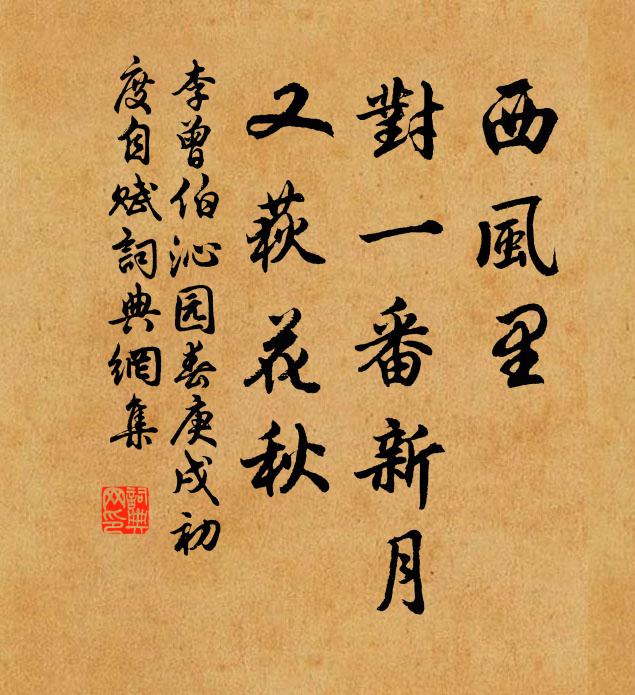 西風里
對一番新月
又萩花秋
李曾伯沁园春庚戌初
度自賦詞典網集
詞典网印